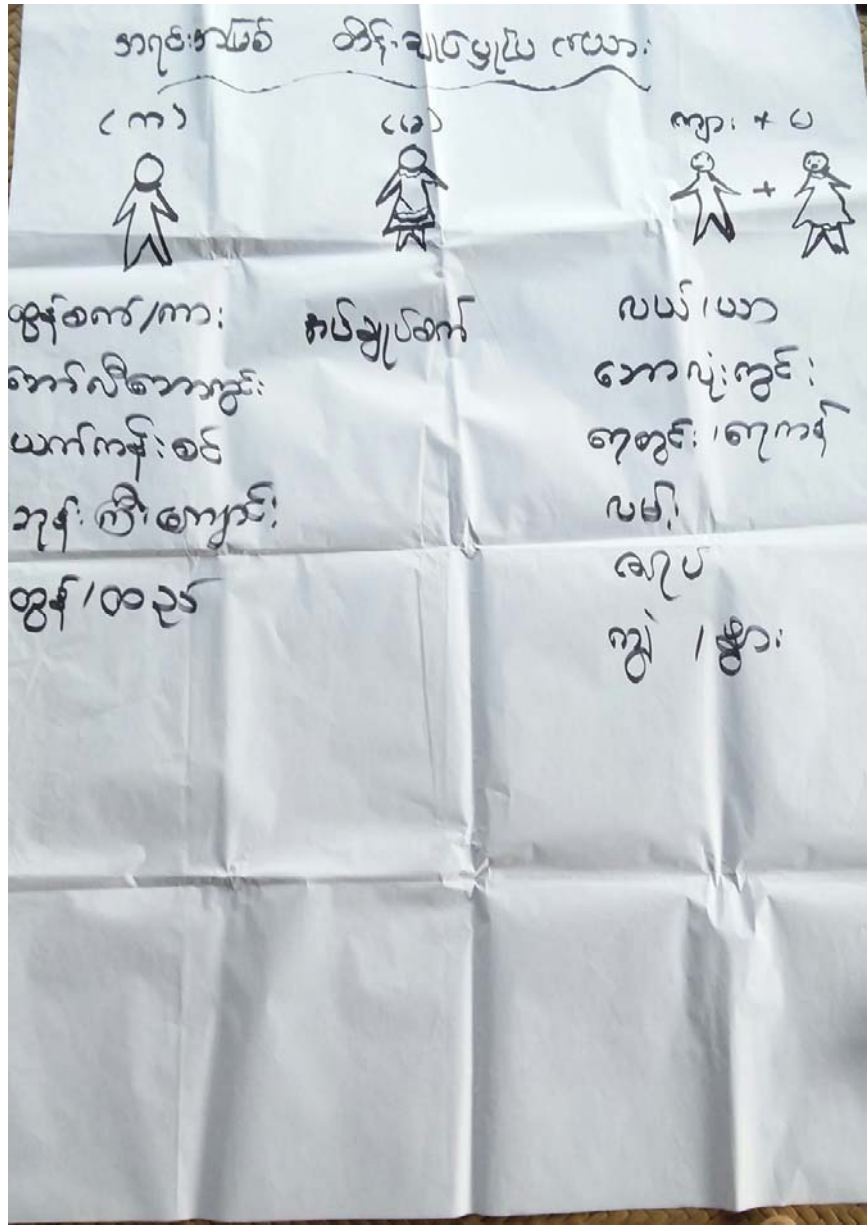 အရင်းအမြစ် ထိန်းချုပ်မှုပြ ဇယား
(က) (မ) ကျား + မ
+
ထွန်စက်/ကား
ဘော်လီဘောကွင်း
ယက်ကန်းစင်
ဘုန်းကြီးကျောင်း
ထွန်/ထယ်
အပ်ချုပ်စက်
လယ်/ယာ
ဘောလုံးကွင်း
ရေတွင်း/ရေကန်
လမ်း
ကျွဲ /နွား